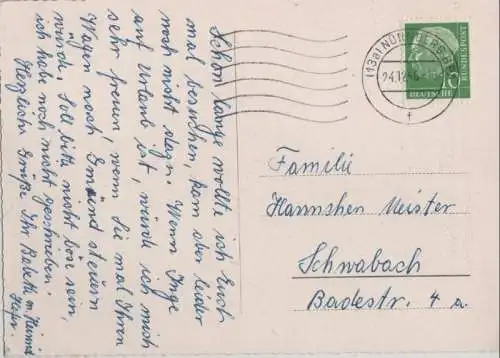 Schon lange wollte ich Euch
mal besuchen, kam aber leider
noch nicht dazu. Wenn Inge
auf Urlaub ist, würde ich mich
sehr freuen, wenn Sie mal Ihren
Wagen nach Gmünd steuern
würde. Soll bitte nicht böse sein,
ich hab noch nicht geschrieben.
Herzliche Grüße Ihr Babeth m. Heinrich
(13a) NÜRNBERG
24.12.56
f
10
BUNDESPOST
DEUTSCHE
Familie
Hannshen Meister
Schwabach
Badestr. 4 a.